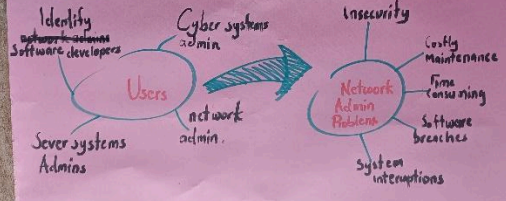 Identify
network admins
Software developers
Cyber systems
admin
Users
network
admin.
Sever systems
Admins
Insecurity
Costly
Maintenance
Time
Consuming
Network
Admin
Problems
Software
breaches
System
interuptions